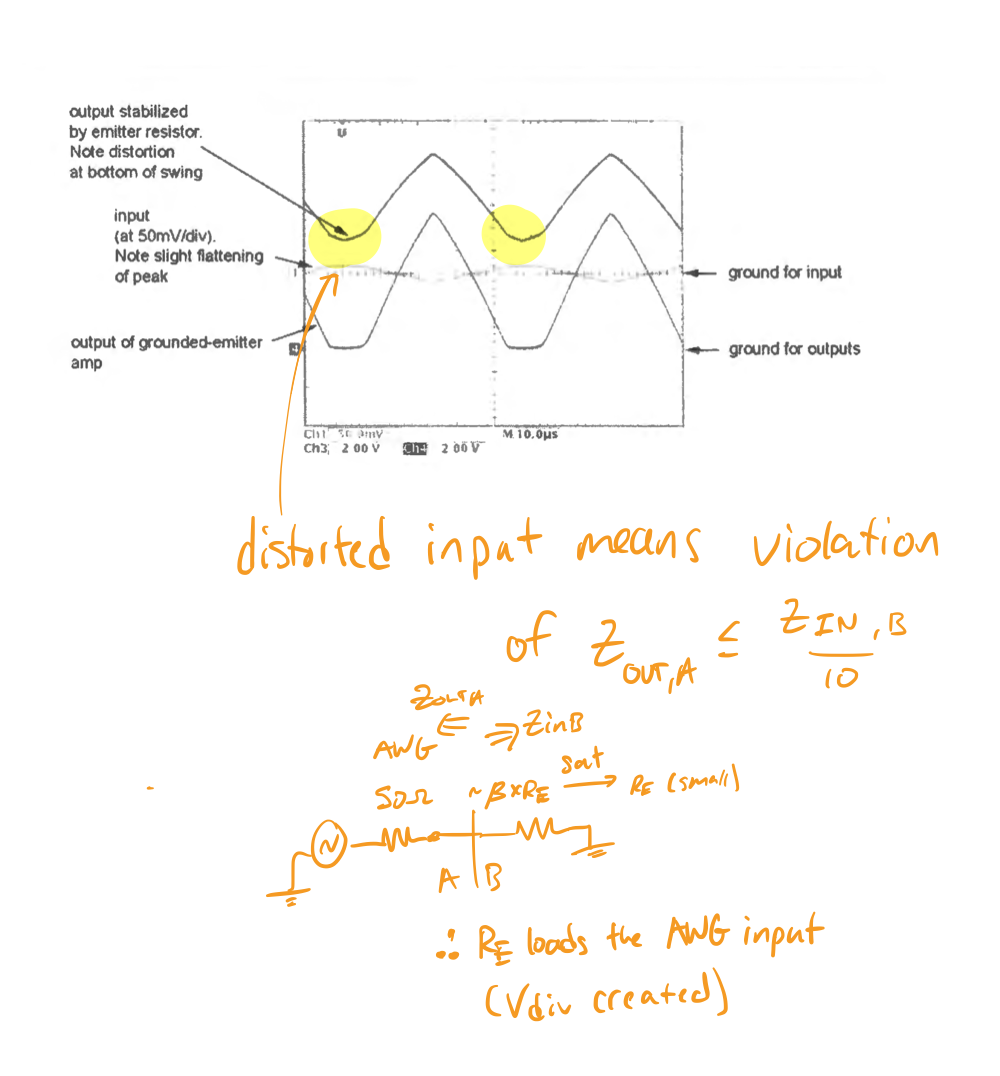 output stabilized
by emitter resistor.
Note distortion
at bottom of swing
input
(at 50mV/div).
Note slight flattening
of peak
ground for input
output of grounded-emitter
amp
ground for outputs
Ch1 50.0mV M 10.0µs
Ch3 2.00 V Ch4 2.00 V
distorted input means violation
of Z_OUT,A ≤ Z_IN,B / 10
ZOUTA
ZinB
AWG
sat
50Ω ~β×RE → RE (small)
A | B
∴ RE loads the AWG input
(Vdiv created)